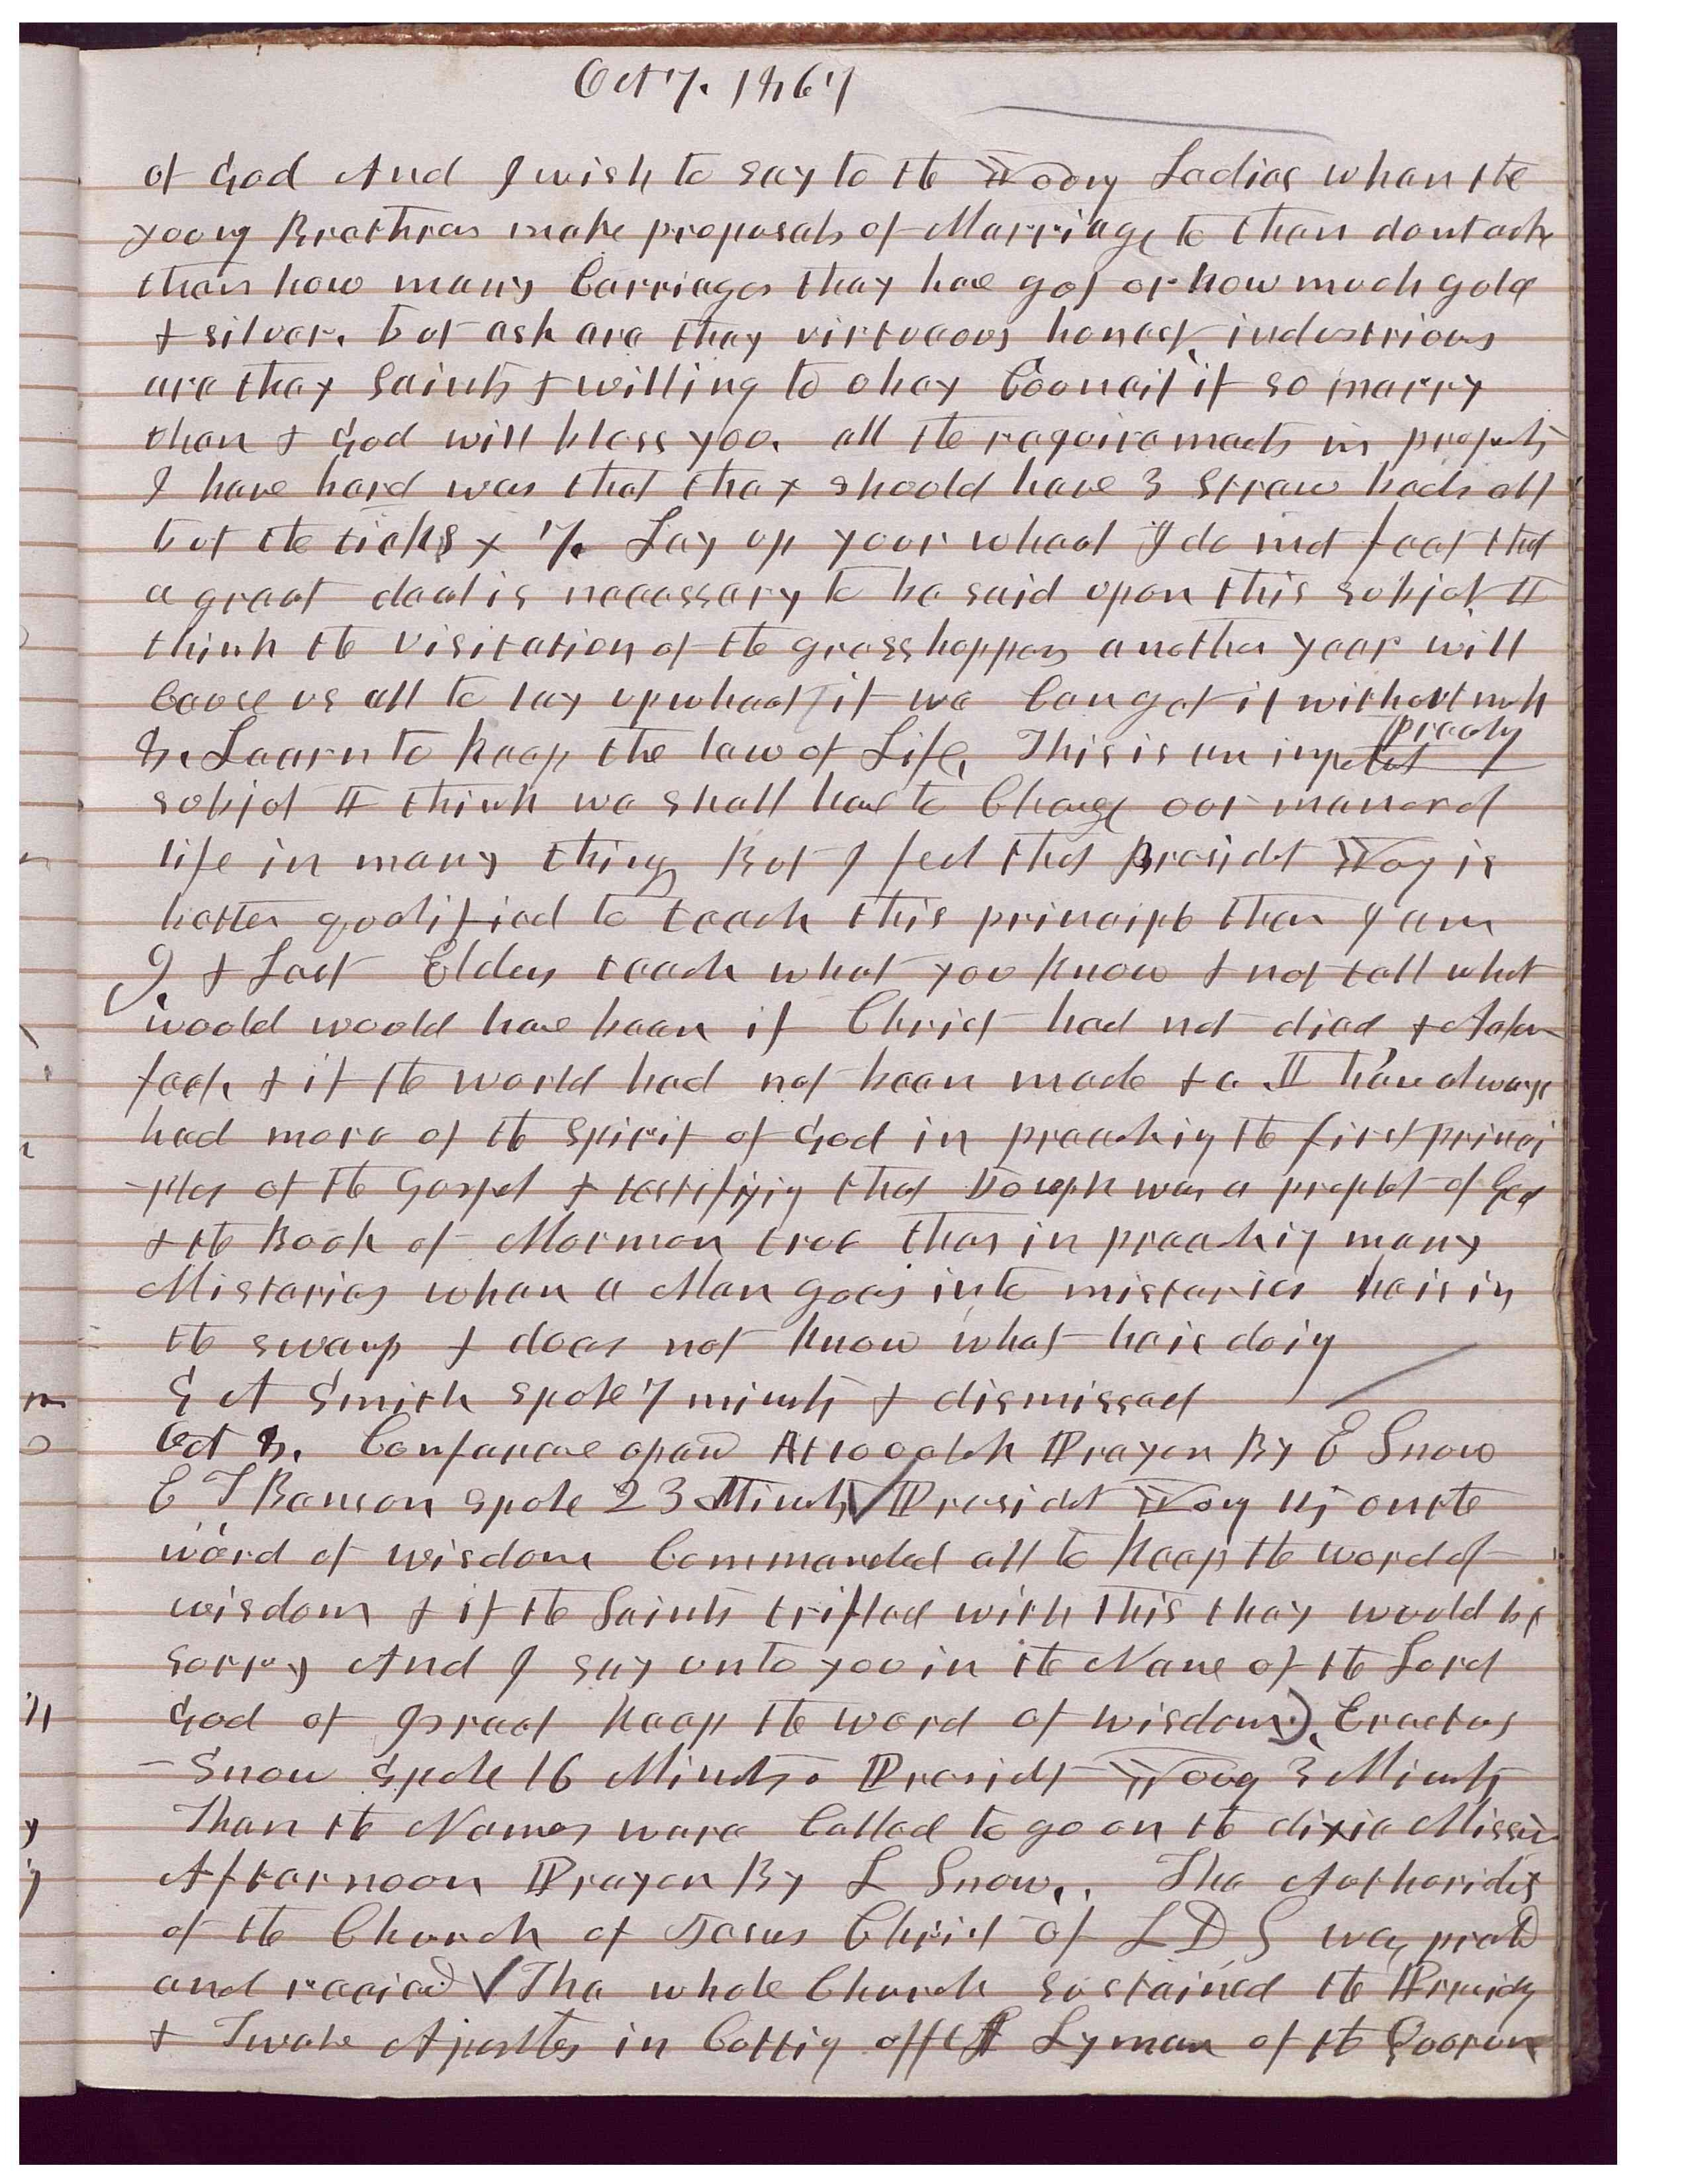 Oct 7. 1867
of God And I wish to say to the Young Ladies when the
young Brethren make proposals of Marriage to them dont ask
them how many Carriages they have got or how much gold
& silver. but ask are they virtueous honest industrious
are they Saints & willing to obey Council if so marry
them & God will bless you. all the requirements in property
I have herd was that they should have 3 straw beds all
but the ticks & 7. Lay up your wheat I do not feel that
a great deal is necessary to be said upon this subjet I
think the visitation of the grasshoppers another year will
cause us all to lay up wheat if we Can get it without much
preachg
8. Learn to keep the law of Life, This is an imptet
subjet I think we shall have to Change our maner of
life in many things But I feel that Presidet Young is
better qualified to teach this principle than I am
9 & Last Elders teach what you know & not tell what
would would have been if Christ had not died & Adam
fell, & if the world had not been made &c I have always
had more of the spirit of God in preaching the first princi
-ples of the Gospel & testifying that Joseph was a prophet of God
& the Book of Mormon true than in preaching many
Mistaries when a Man goes into mistaries he is in
the swamp & does not know what he is doing
G A Smith spoke 7 minuts & dismissed
Oct 8. Conference opend At 10 oclok Prayer By E Snow
E T Benson spoke 23 Minuts Presidet Young 15 on the
word of wisdom Commanded all to keep the word of
wisdom & if the Saints trifled with this they would be
sorry And I say unto you in the Name of the Lord
God of Israel keep the word of wisdom). Erastus
Snow spoke 16 Minuts. Presidt Young 3 Minuts
Then the Names ware Called to go on the dixie Mission
Afternoon Prayer By L Snow,. The Authorides
of the Church of Jesus Christ of LDS was presed
and received The whole Church sustained the Presidcy
& Twelve Apostles in Cuttig off A Lyman of the Quorum